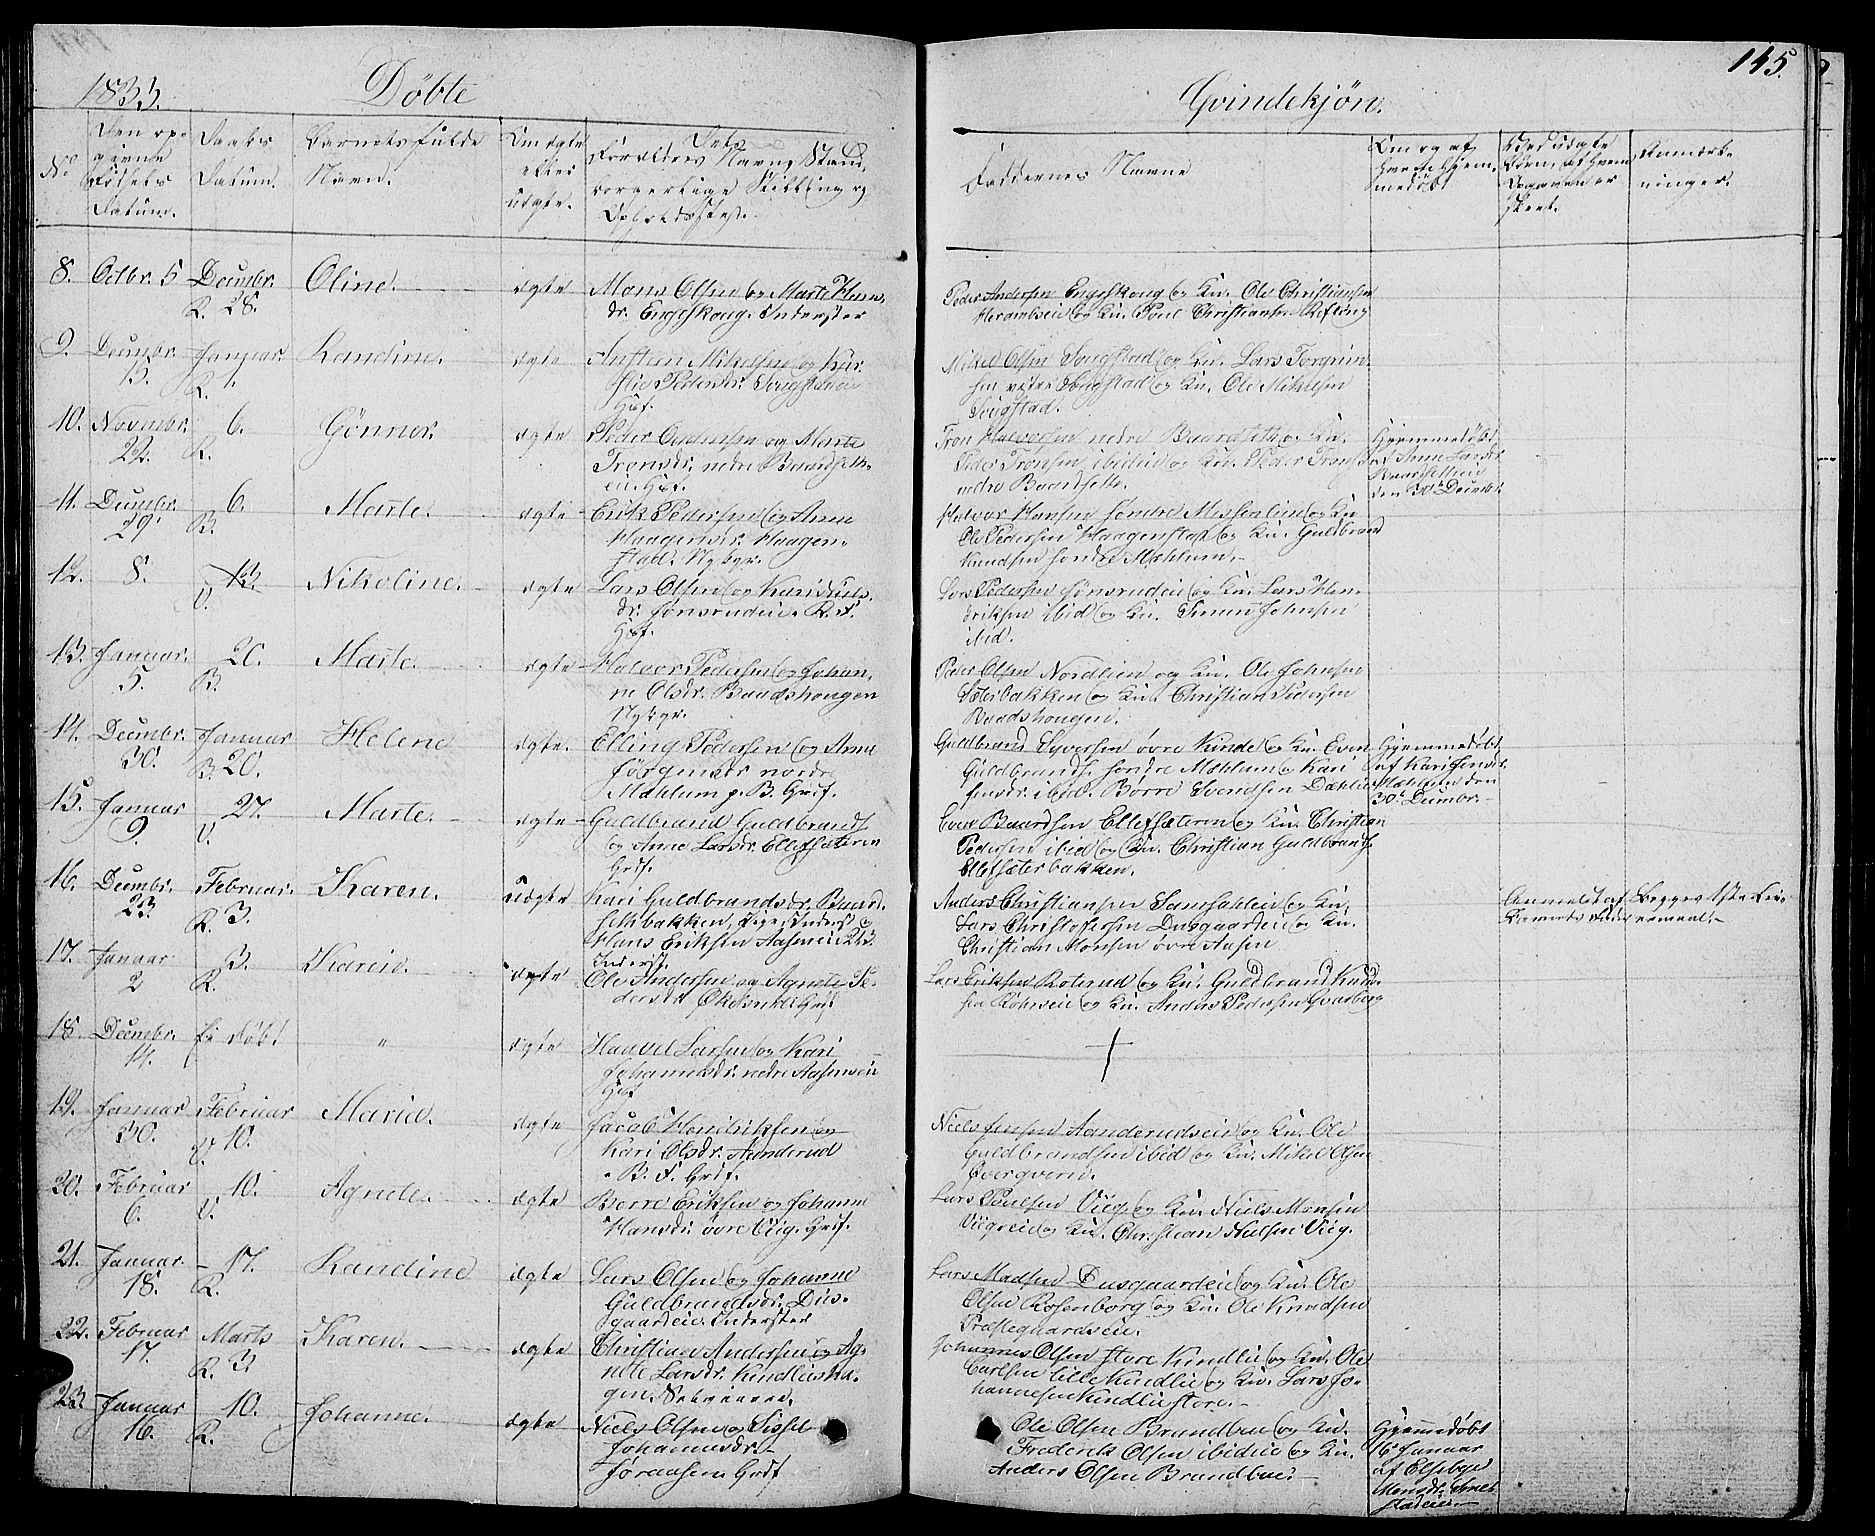 1833.
Döbte
Qvindekjön.
145.
No
Den op-
givne
Födsels
Datum.
Daabs
Datum.
Barnets fulde
Navn.
Om ægte
eller
uægte.
Forældres Navne, Stand,
borgerlige Stilling og
Opholdssted.
Faddernes Navne
Om og af
hvem hjem-
medöbt
Anmærk-
ninger.
8. Octbr. 5 Decembr. R. 28. Oline. ægte Mons Olsen og Marte
Engeskoug. Inderster
Peder Andersen Engeskoug og Ku. Ole Christiansen
og Ku. Poul Christiansen
9. Decmbr. 15. Januar. R. 1. Randine. ægte Mikelsen og
Pedersdr.
Huusf.
Mikel Olsen Sougstad og Ku. Lars Torgrim-
sen Sougstad og Ku. Ole Mikelsen
Sougstad.
10. Novmbr. 22. 6. R. Gönner. ægte Peder og Marte
Tronsdr. nedre Baardseth-
ei. Huusf.
Tron Halvorsen nedre Baardseth og Ku.
Peder Tronsen ibidei og Ku. Peder Trons.
nedre Baardseth.
Hjemmedöbt
af Anne Larsdr
Baardsethei
den 30te Decmbr.
11. Decmbr. 29. 6. B. Marte. ægte Erik Pedersen og Anne
Haagensdr. Haagen-
stad. Nybyr.
Halvor Hansen söndre Messenlien og Ku.
Ole Pedersen Haagenstad og Ku. Guldbrand
Knudsen söndre Mæhlum.
12. 8. 13. V. Nikoline. ægte Lars Olsen og Kari
dr. Jönsrudei. R. F.
Huusf.
Lars Pedersen Jönsrudei og Ku. Lars Hen-
driksen ibid og Ku. Simen Johnsen
ibid.
13. Januar. 5. 20. B. Marte. ægte Halvor Pedersen og Johan-
ne Olsdr. Baadshougen
Nybyr.
Peder Olsen Nordlien og Ku. Ole Johnsen
Sæterbakken og Ku. Christian Pedersen
Baadshougen.
14. Decmbr. 30. Januar B. 20. Helene ægte. Elling Pedersen og Anne
Jörgensdr nordre
Mæhlum p. B. Grdf.
Guldbrand Syversen övre Kinde og Ku. Even
Guldbrands. söndre Mæhlum og Kari
Jensdr. ibid. Börre Svendsen Dæhlie
Hjemmedöbt
af Kari Jensdr.
Mæhlum den
30te Decmbr.
15. Januar 9. 27. V. Marte. ægte Guldbrand Guldbrands.
og Anne Larsdr. Ellefsæteren
Grdf.
Even Baardsen Ellefsæteren og Ku. Christian
Pedersen ibid og Ku. Christian Guldbrands.
Ellefsæterbakken.
16. Decmbr. 23. Februar. R. 3. Karen. uægte Kari Guldbrandsdr. Baard-
sethbakken, Pige, Inderst og
Hans Eriksen Aasenei
Inderst.
Anders Christiansen og Ku.
Lars Christoffersen Dusgaardei og Ku.
Christian Monsen övre Aasen
Anmeldt af
Barnets
Begges 1ste Lei-
ermaal.
17. Januar 2 3. R. Karen. ægte Ole Andersen og Agnete Pe-
dersdr. Grdf.
Lars Eriksen Roterud og Ku. Guldbrand Knud-
sen og Ku. Anders Pedersen Gvarberg
18. Decmbr. 14. Ei döbt " ægte Haavel Larsen og Kari
Johannesdr. nedre Aasenei
Huusf
19. Januar 30. Februar V. 10. Maria. ægte Jacob Hendriksen og
Kari Olsdr. Aanderud
B. F. Grdf.
Niels Jensen Aanderudsei og Ku. Ole
Guldbrandsen ibid og Ku. Mikel Olsen
20. Februar 6. 10. V. Agnete. ægte Börre Eriksen og Johanne
Hansdr. övre Viig. Grdf.
Lars Poulsen Viig og Ku. Niels Monsen
Viigsei og Ku. Christian Nielsen Viig.
21. Januar 18. 17. R. Randine ægte Lars Olsen og Johanne
Guldbrandsdr. Dus-
gaardei. Inderster
Lars Madsen Dusgaardei og Ku. Ole
Olsen Rosenborg og Ku. Ole Knudsen
Præstegaardsei.
22. Februar 17. Marts R. 3 Karen. ægte Christian Andersen og Ag-
nete Larsdr. Kindlieha-
gen. Selveiere.
Johannes Olsen store Kindlie og Ku. Ole
Carlsen lille Kindlie og Ku. Lars Jo-
hannesen Kindlie store.
23. Januar 16. 10. R. Johanne. ægte Niels Olsen og Sissel
Johannesdr.
Jöraasen Grdf
Ole Olsen Brundbue og Ku.
Frederik Olsen ibidei og Ku.
Anders Olsen Brundbue.
Hjemmedöbt
16 Januar
af Elseby
Monsdr.